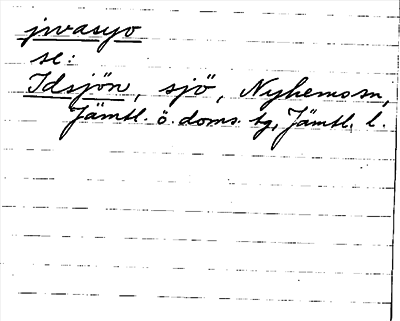 jwasyo
se:
Idsjön, sjö, Nyhems sn,
Jämtl. ö. doms. tg, Jämtl. l.